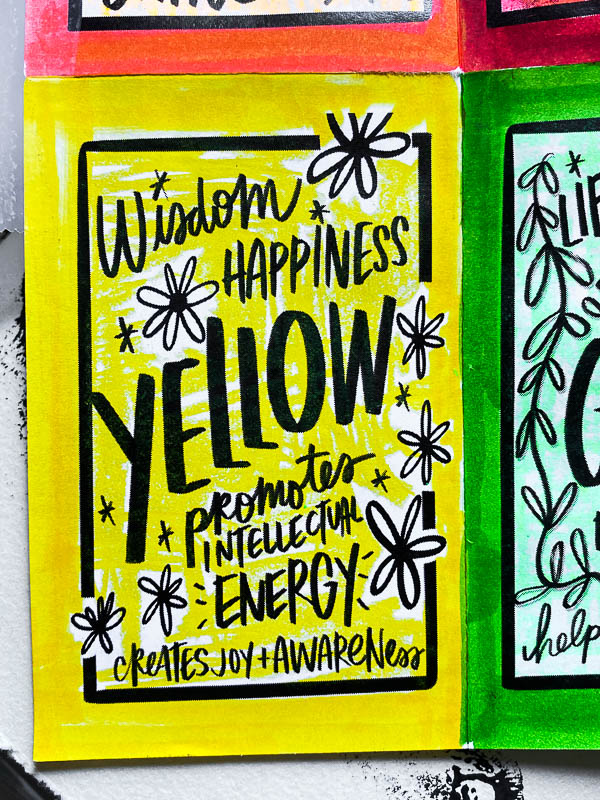 Wisdom
HAPPINESS
YELLOW
promotes
INTELLECTUAL
ENERGY
CREATES JOY + AWARENESS
help